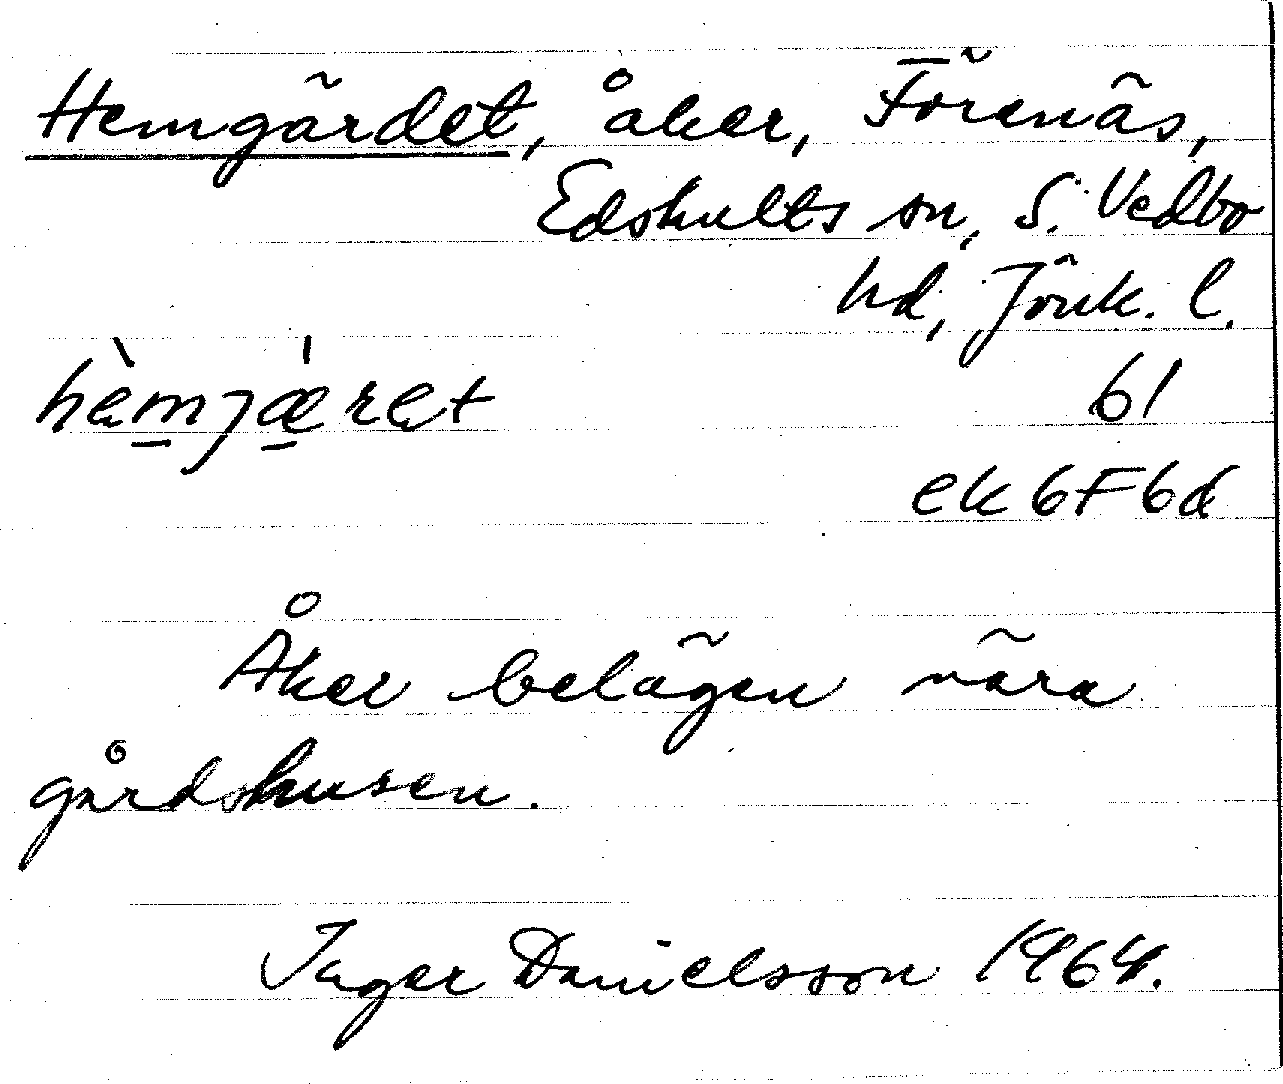 Hemgärdet, åker, Förenäs,
Edshults sn, S. Vedbo
hd, Jönk. l.
hèmjæ̀ret 61
ek6F6d
Åker belägen nära
gårdshusen.
Inger Danielsson 1964.